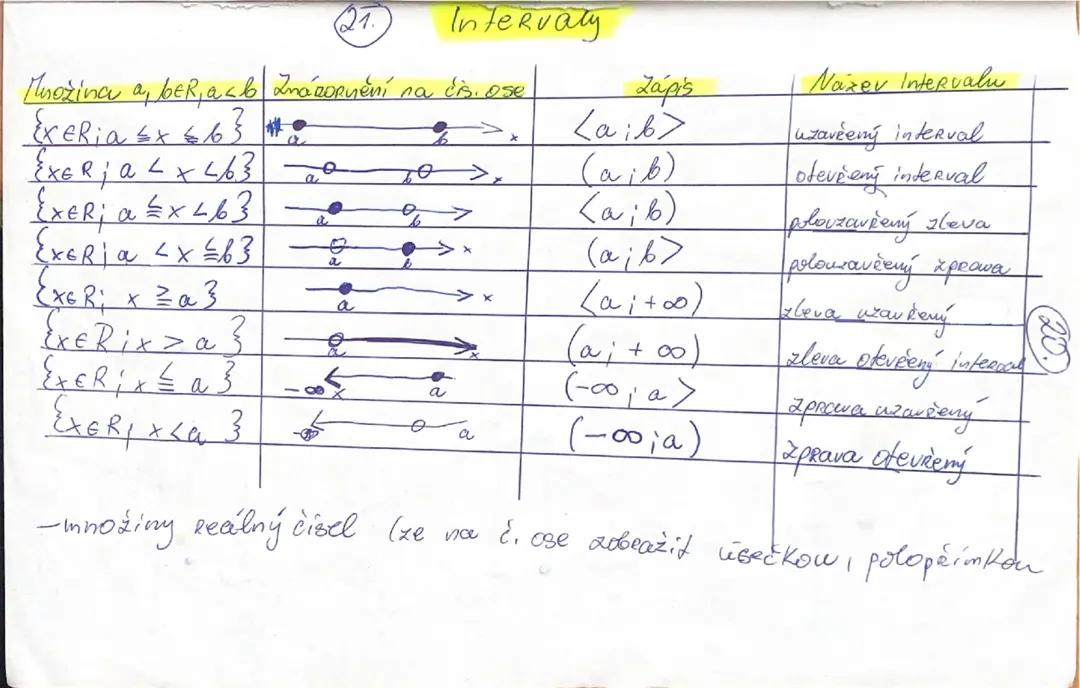 21. Intervaly
Množina a, b∈R, a<b Znázornění na čís. ose Zápis Název Intervalu
{x∈R; a ≦ x ≦ b} a b x <a;b> uzavřený interval
{x∈R; a < x < b} a b x (a;b) otevřený interval
{x∈R; a ≦ x < b} a b <a;b) polouzavřený zleva
{x∈R; a < x ≦ b} a b x (a;b> polouzavřený zprava
{x∈R; x ≧ a} a x <a;+∞) zleva uzavřený
{x∈R; x > a} a x (a; + ∞) zleva otevřený interval
20.
{x∈R; x ≦ a} -∞ x a (-∞; a> zprava uzavřený
{x∈R; x < a} -∞ a (-∞;a) zprava otevřený
-množiny reálný čísel lze na č. ose zobrazit úsečkou, polopřímkou